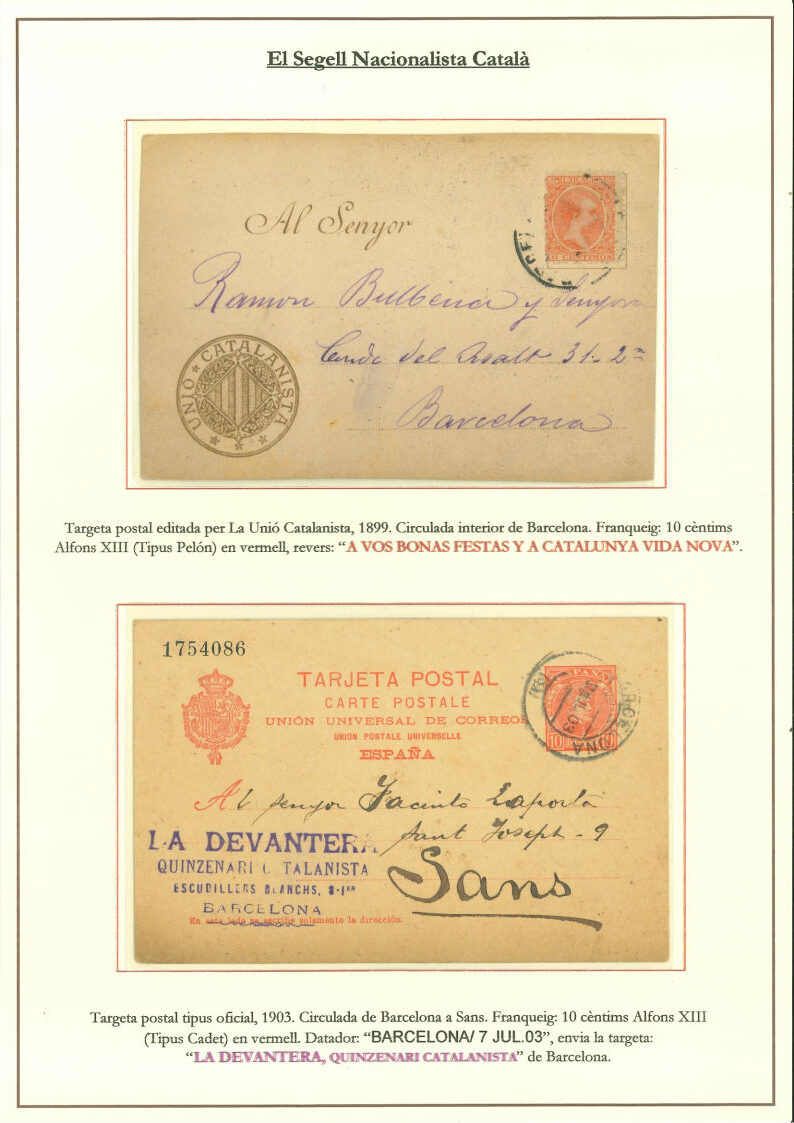 El Segell Nacionalista Català
COMUNICACIONES
10 CENTIMOS
Al Senyor
Ramon Bulbena y Senyora
Conde del Asalt 31-2n
Barcelona
UNIO CATALANISTA
Targeta postal editada per La Unió Catalanista, 1899. Circulada interior de Barcelona. Franqueig: 10 cèntims
Alfons XIII (Tipus Pelón) en vermell, revers: “A VOS BONAS FESTAS Y A CATALUNYA VIDA NOVA”.
1754086
TARJETA POSTAL
CARTE POSTALE
UNIÓN UNIVERSAL DE CORREOS
UNION POSTALE UNIVERSELLE
ESPAÑA
Al senyor Jacinto Laporta
Sant Joseph - 9
Sans
LA DEVANTERA
QUINZENARI C TALANISTA
ESCUDILLERS BLANCHS, 8-1ER
BARCELONA
En este lado se escribe solamente la dirección.
Targeta postal tipus oficial, 1903. Circulada de Barcelona a Sans. Franqueig: 10 cèntims Alfons XIII
(Tipus Cadet) en vermell. Datador: “BARCELONA/ 7 JUL.03”, envia la targeta:
“LA DEVANTERA, QUINZENARI CATALANISTA” de Barcelona.